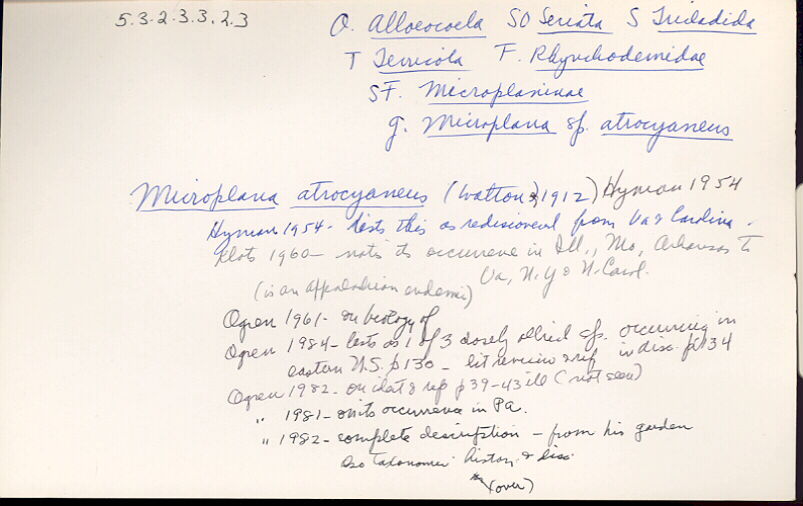 5.3.2.3.3.2.3
O. Alloeocoela SO Seriata S Tricladida
T Terricola F. Rhynchodemidae
SF. Microplaninae
g. Microplana sp. atrocyaneus
Microplana atrocyaneus (Walton, 1912) Hyman 1954
Hyman 1954 - lists this as rediscovered from Va & Carolina.
Klots 1960 - notes its occurrence in Ill., Mo, Arkansas to
Va, N.Y & N. Carol.
(is an Appalachian endemic)
Ogren 1961 - on biology of
Ogren 1984 - lists as 1 of 3 closely allied sp. occurring in
eastern U.S. p 130 - lit review & rif in disc. p 134
Ogren 1982 - on ident & rep p 39-43 ill (not seen)
" 1981 - on its occurrence in Pa.
" 1982 - complete description - from his garden
also taxonomic history & disc
(over)